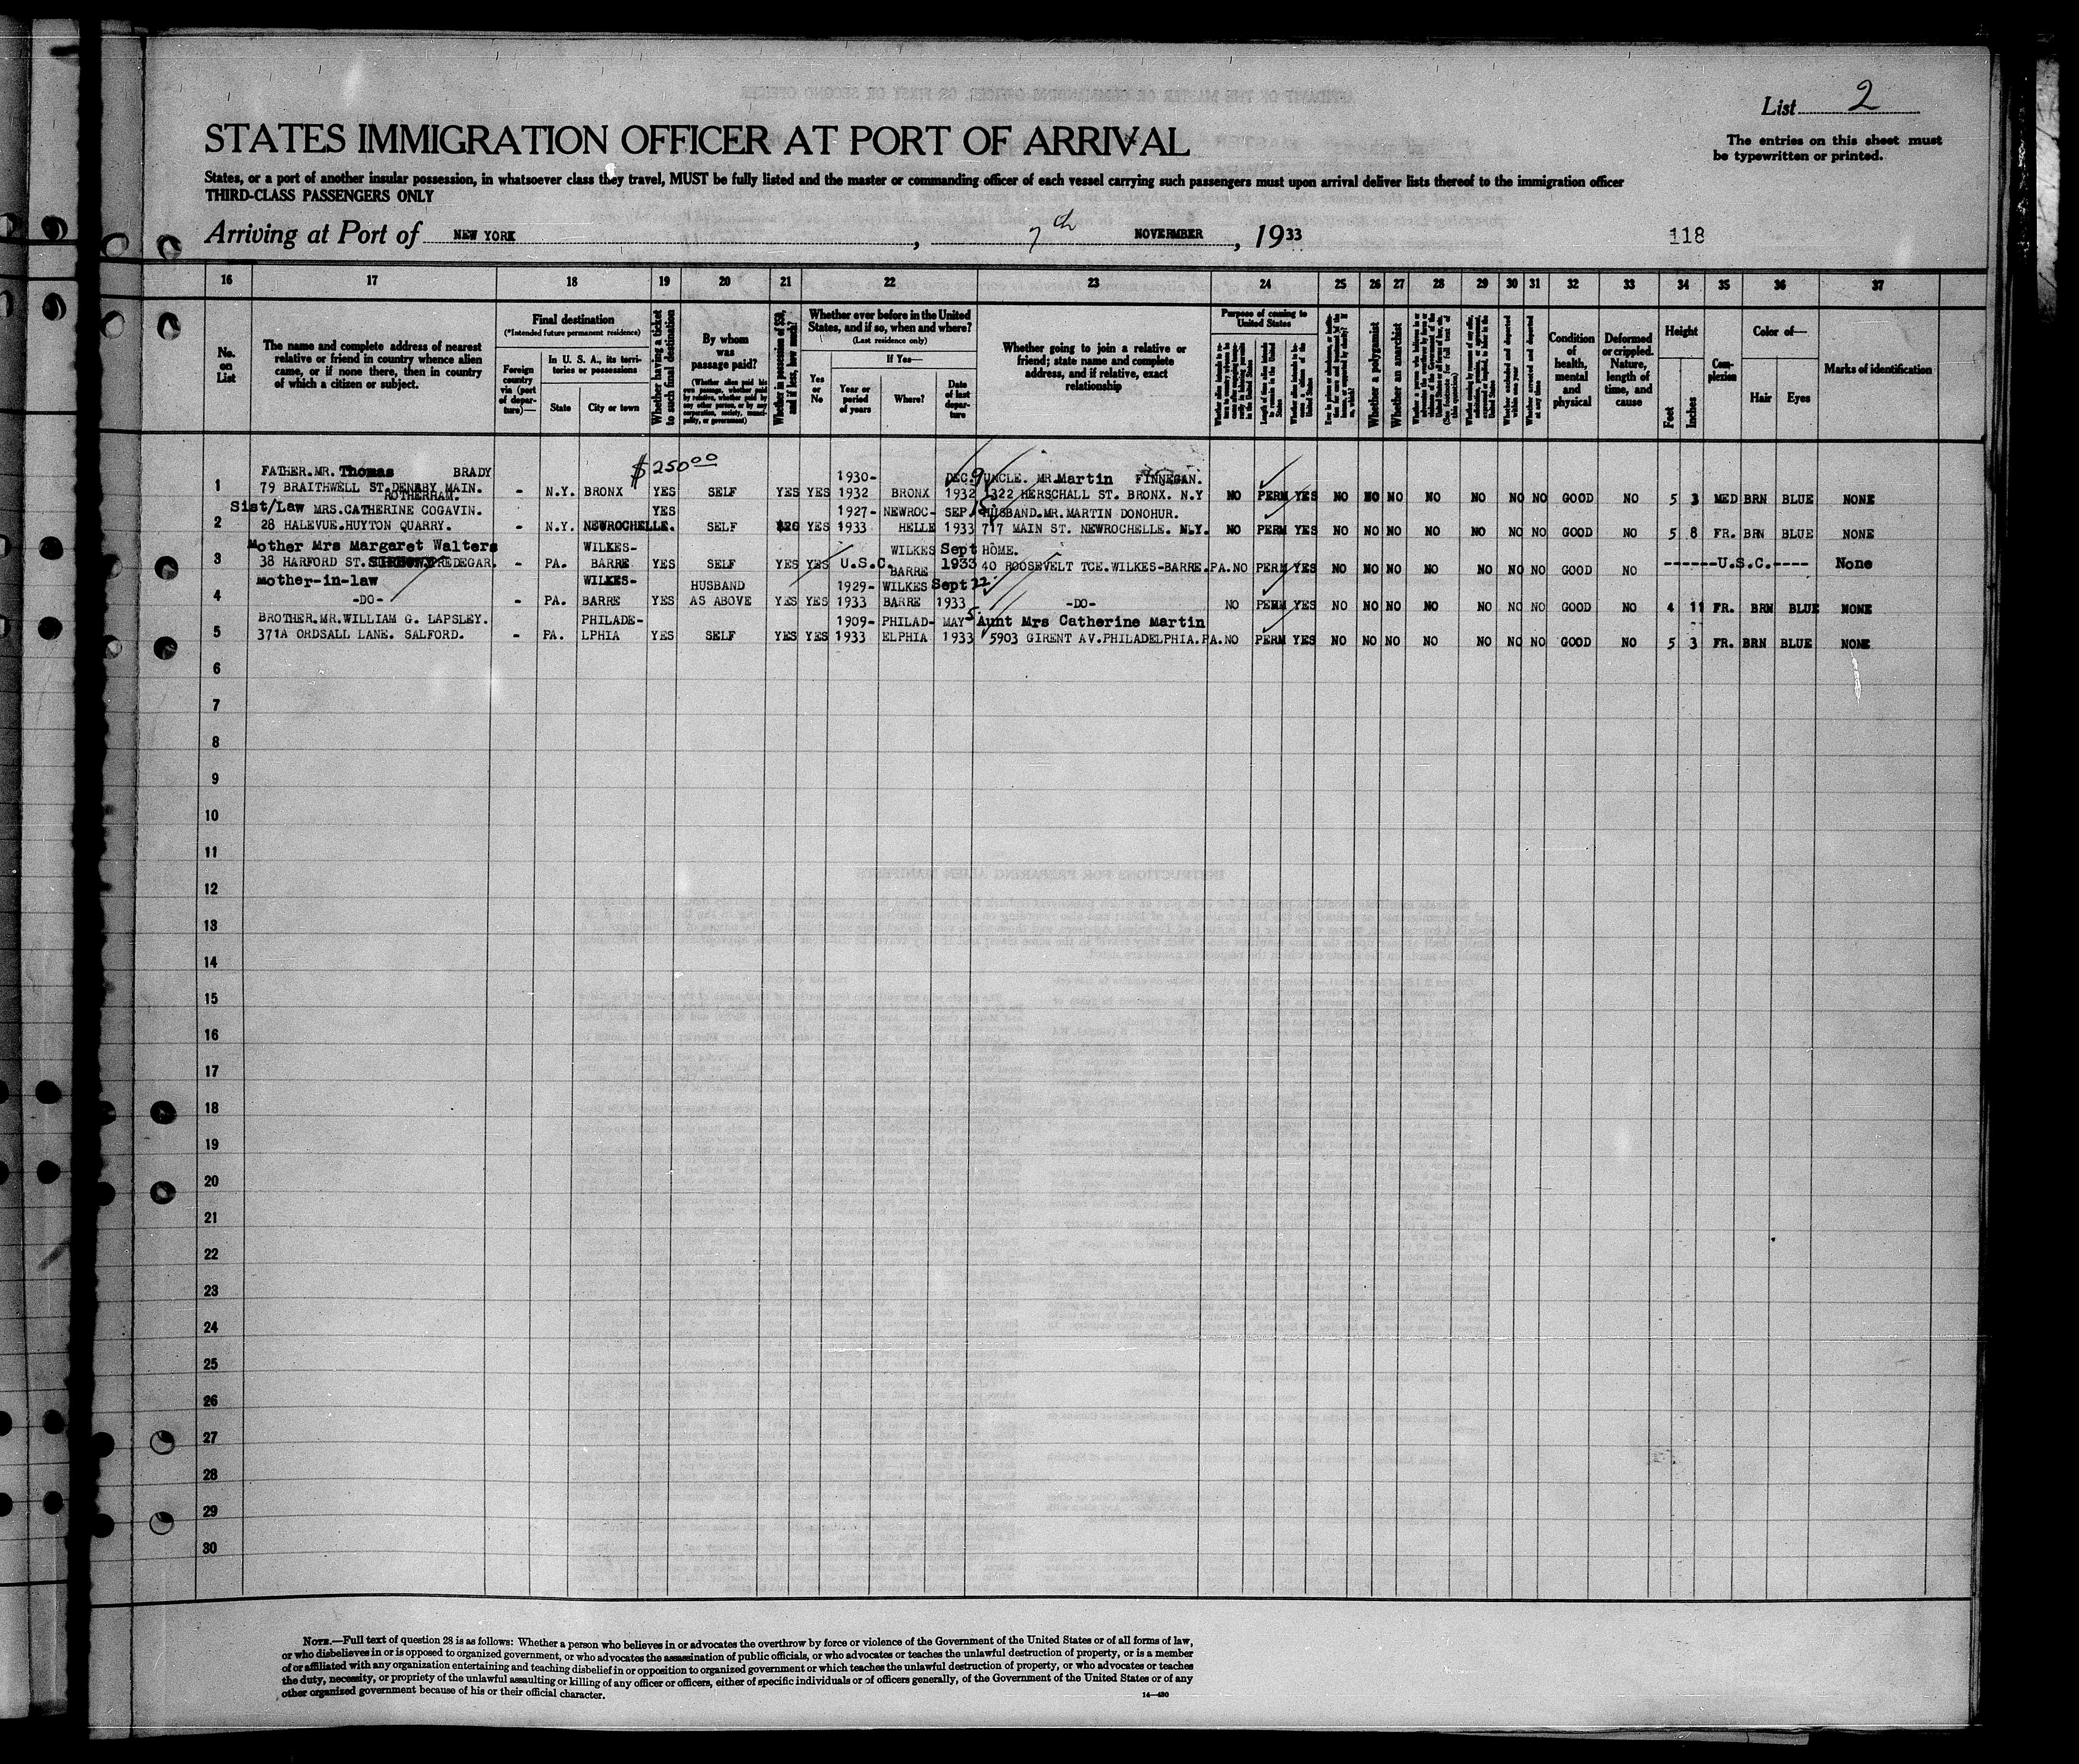 List 2
STATES IMMIGRATION OFFICER AT PORT OF ARRIVAL
The entries on this sheet must
be typewritten or printed.
States, or a port of another insular possession, in whatsoever class they travel, MUST be fully listed and the master or commanding officer of each vessel carrying such passengers must upon arrival deliver lists thereof to the immigration officer
THIRD-CLASS PASSENGERS ONLY
Arriving at Port of NEW YORK, 7th NOVERMBER, 1933
118
16 17 18 19 20 21 22 23 24 25 26 27 28 29 30 31 32 33 34 35 36 37
No.
on
List
The name and complete address of nearest
relative or friend in country whence alien
came, or if none there, then in country
of which a citizen or subject.
Final destination
(*Intended future permanent residence)
Foreign
country
via (port
of depar-
ture)—
In U. S. A., its terri-
tories or possessions
State
City or town
Whether having a ticket
to such final destination
By whom
was
passage paid?
(Whether alien paid his
own passage, whether paid
by relative, whether paid by
any other person, or by any
corporation, society, munici-
pality, or government)
Whether in possession of $50,
and if less, how much?
Whether ever before in the United
States, and if so, when and where?
(Last residence only)
Yes
or
No
If Yes—
Year or
period
of years
Where?
Date
of last
depar-
ture
Whether going to join a relative or
friend; state name and complete
address, and if relative, exact
relationship
Purpose of coming to
United States
Whether a polygamist
Whether an anarchist
Condition
of
health,
mental
and
physical
Deformed
or crippled.
Nature,
length of
time, and
cause
Height
Feet
Inches
Com-
plexion
Color of—
Hair
Eyes
Marks of identification
$250.00
FATHER.MR. Thomas BRADY 1930- DEC.9 UNCLE. MR.Martin FINNEGAN.
1 79 BRAITHWELL ST.DENABY MAIN. - N.Y. BRONX YES SELF YES YES 1932 BRONX 1932 1322 HERSCHALL ST. BRONX. N.Y NO PERM YES NO NO NO NO NO NO NO GOOD NO 5 3 MED BRN BLUE NONE
ROTHERHAM.
Sist/Law MRS.CATHERINE COGAVIN. YES 1927- NEWROC- SEP. HUSBAND.MR.MARTIN DONOHUR.
2 28 HALEVUE.HUYTON QUARRY. - N.Y. NEWROCHELLE. SELF $20 YES 1933 HELLE 1933 717 MAIN ST. NEWROCHELLE. N.Y. NO PERM YES NO NO NO NO NO NO NO GOOD NO 5 8 FR. BRN BLUE NONE
Mother Mrs Margaret Walters WILKES- WILKES Sept HOME.
3 38 HARFORD ST. TREDEGAR. - PA. BARRE YES SELF YES YES U.S.C. BARRE 1933 40 ROOSEVELT TCE.WILKES-BARRE.PA. NO PERM YES NO NO NO NO NO NO NO GOOD NO ------U.S.C.---- None
mother-in-law WILKES- HUSBAND 1929- WILKES Sept 22.
4 -DO- - PA. BARRE YES AS ABOVE YES YES 1933 BARRE 1933 -DO- NO PERM YES NO NO NO NO NO NO NO GOOD NO 4 11 FR. BRN BLUE NONE
BROTHER.MR.WILLIAM G. LAPSLEY. PHILADE- 1909- PHILAD- MAY 5. Aunt Mrs Catherine Martin
5 371A ORDSALL LANE. SALFORD. - PA. LPHIA YES SELF YES YES 1933 ELPHIA 1933 5903 GIRENT AV.PHILADELPHIA.PA. NO PERM YES NO NO NO NO NO NO NO GOOD NO 5 3 FR. BRN BLUE NONE
6
7
8
9
10
11
12
13
14
15
16
17
18
19
20
21
22
23
24
25
26
27
28
29
30
NOTE.—Full text of question 28 is as follows: Whether a person who believes in or advocates the overthrow by force or violence of the Government of the United States or of all forms of law,
or who disbelieves in or is opposed to organized government, or who advocates the assassination of public officials, or who advocates or teaches the unlawful destruction of property, or is a member
of or affiliated with any organization entertaining and teaching disbelief in or opposition to organized government or which teaches the unlawful destruction of property, or who advocates or teaches
the duty, necessity, or propriety of the unlawful assaulting or killing of any officer or officers, either of specific individuals or of officers generally, of the Government of the United States or of any
other organized government because of his or their official character.
14—480